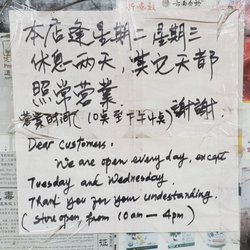 本店逢星期二星期三
休息一两天，其它天都
照常营业.
营业时间 10点至下午4点 謝謝.
Dear Customers.
We are open every day, except
Tuesday and Wednesday.
Thank you for your understanding.
(Store open, from 10am — 4pm)